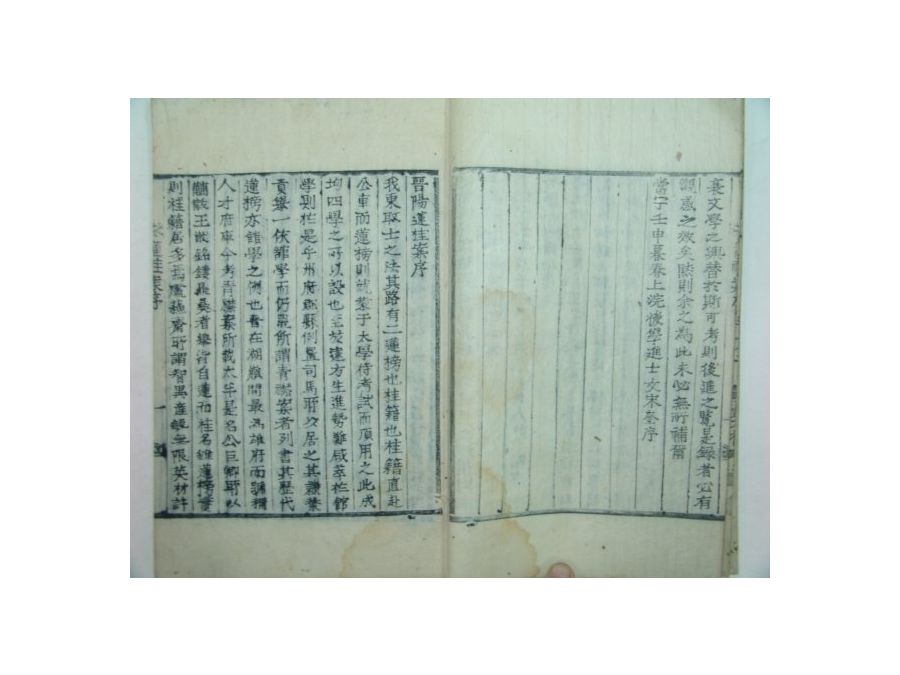 衰文學之興替於斯可考則後進之覽是録者必有
觀感之效矣然則余之為此未必無所補爾
當宁壬申暮春上浣後學進士文宋奎序
晋陽蓮桂案序
我東取士之法其路有二蓮榜也桂籍也桂籍直赴
公車而蓮榜則就業于太學待考試而須用之此成
均四學之所以設也至於遠方生進勢難咸萃於館
學則於是乎州府郡縣倒置司馬所以居之其讓業
貢舉一依館學而仍
所謂青襟案者列書其歷代
蓮榜亦館學之例也晋在湖嶺間最為雄府而號稱
人才府庫今考青襟案所載太半是名公巨卿所以
者舉皆自蓮而桂名
則桂籍居多
所謂智異産
無限英材許
蓮桂案序
一